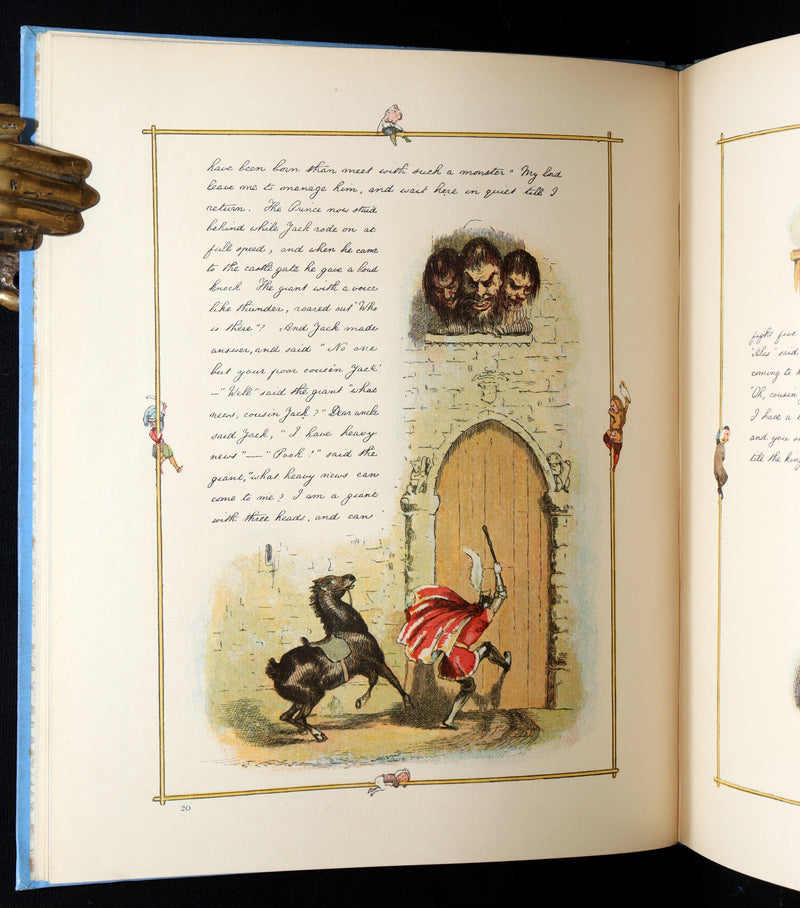 have been born than meet with such a monster" My Lord
leave me to manage him, and wait here in quiet till I
return. The Prince now staid
behind while Jack rode on at
full speed, and when he came
to the castle gate he gave a loud
knock The giant with a voice
like thunder, roared out "Who
is there"? And Jack made
answer, and said "No one
but your poor cousin Jack"
—"Well" said the giant "what
news, cousin Jack?" Dear uncle
said Jack, "I have heavy
news"—"Pooh!" said the
giant, "what heavy news can
come to me? I am a giant
with three heads, and can
20
fight five
"Alas" said
coming to
"Oh, cousin
I have a
and you
till the king